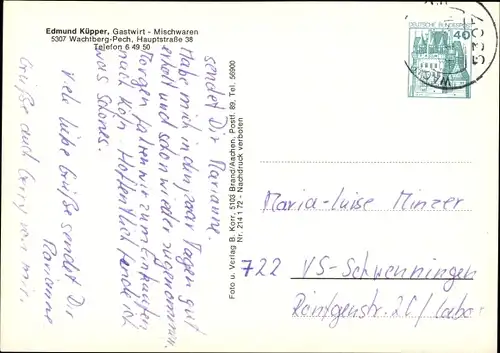 Edmund Küpper, Gastwirt - Mischwaren
5307 Wachtberg-Pech, Hauptstraße 38
Telefon 6 49 50
Viele liebe Grüße sendet Dir
Marianne
sendet Dir Marianne
Habe mich in den paar Tagen gut
erholt und schon wieder zugenommen.
Morgen fahren wir zum Einkaufen
nach Köln. Hoffentlich finde ich
was schönes.
Grüße auch von mir.
Foto u. Verlag B. Korr, 5103 Brand/Aachen, Postf. 89, Tel. 56900
Nr. 214 1 72 - Nachdruck verboten
DEUTSCHE BUNDESPOST
40
5307
Maria-Luise Minzer
722 VS-Schwenningen
Röntgenstr. 20/